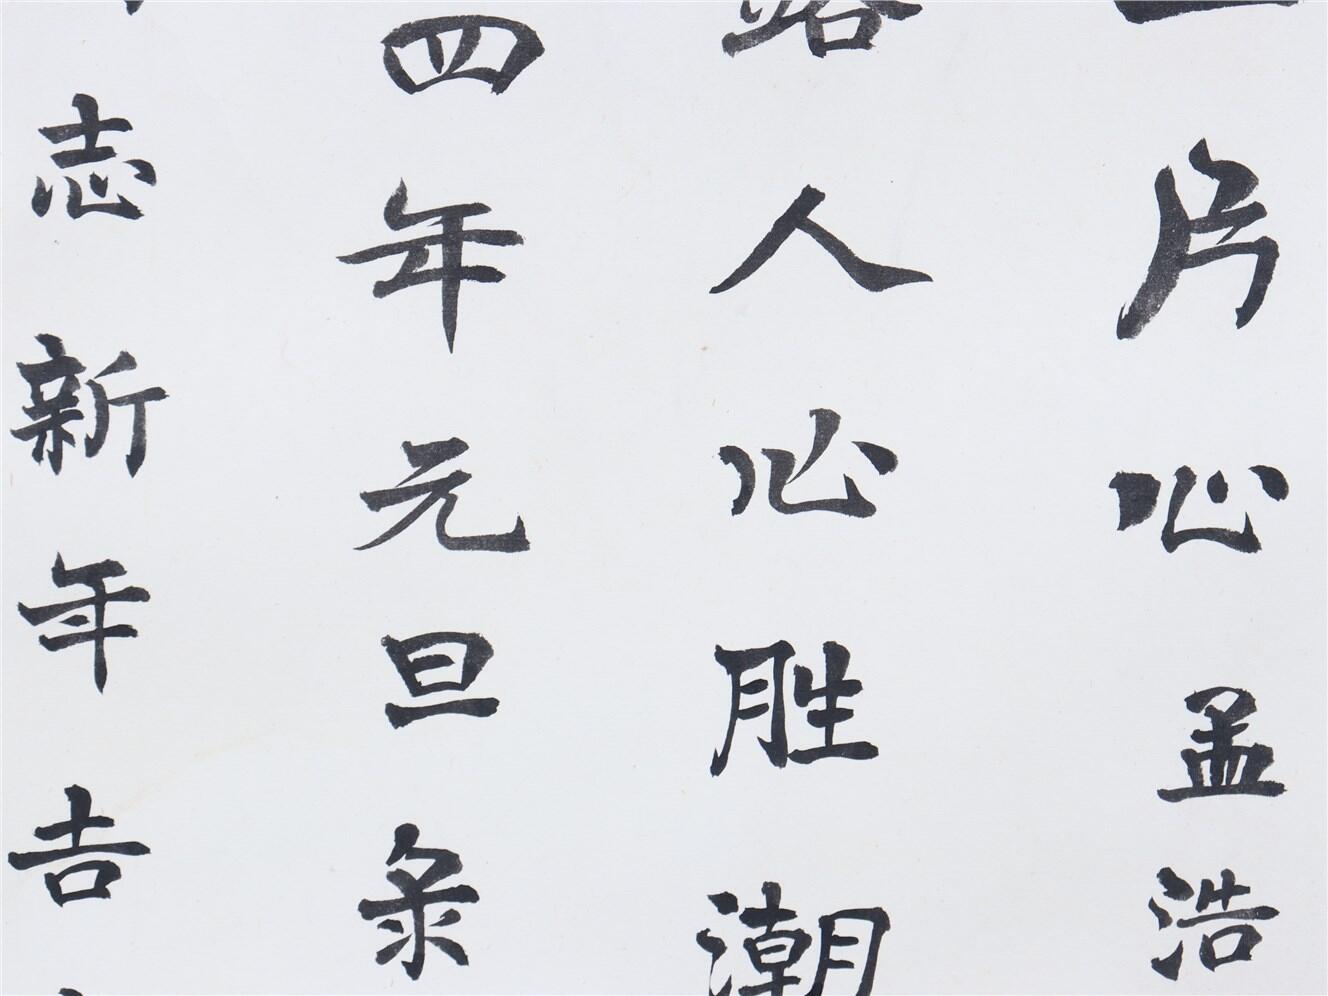 片心孟浩
路人心胜潮
四年元旦录
志新年吉